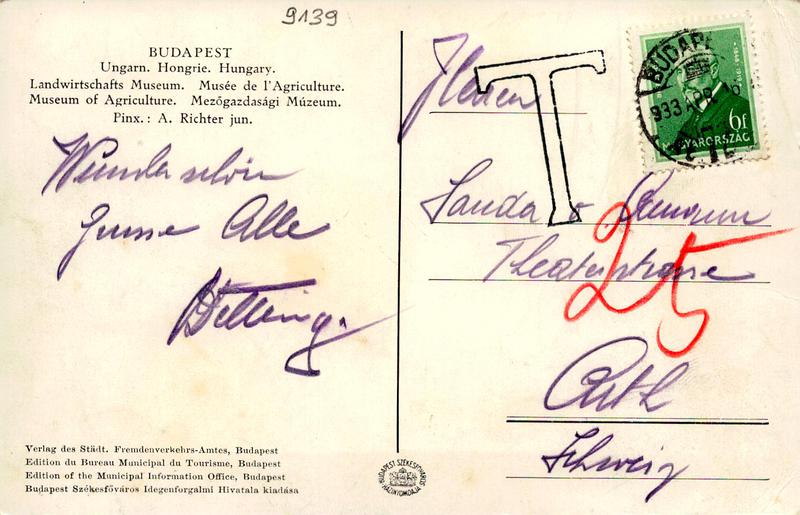 9139
BUDAPEST
Ungarn. Hongrie. Hungary.
Landwirtschafts Museum. Musée de l'Agriculture.
Museum of Agriculture. Mezőgazdasági Múzeum.
Pinx.: A. Richter jun.
Wunderschön
Grüsse Alle
Dettling.
Verlag des Städt. Fremdenverkehrs-Amtes, Budapest
Edition du Bureau Municipal du Tourisme, Budapest
Edition of the Municipal Information Office, Budapest
Budapest Székesfőváros Idegenforgalmi Hivatala kiadása
BUDAPEST SZÉKESFŐVÁROS HÁZINYOMDÁJA
T
BUDAPE
933 APR
6f
MAGYARORSZÁG
Theaterstrasse
25
Arth
Schweiz